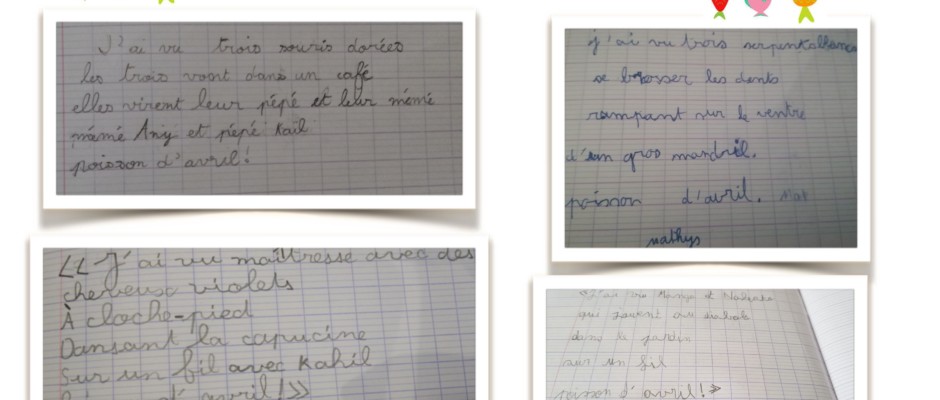 J'ai vu trois souris dorées
les trois vont dans un café
elles virent leur pépé et leur mémé
mémé Any et pépé Kail
poisson d'avril!
j'ai vu trois
se brosser les dents
rampant sur le ventre
d'un gros mandril.
poisson d'avril. Mat
mathys
<< J'ai vu maîtresse avec des
cheveux violets
À cloche-pied
Dansant la capucine
Sur un fil avec Kahil
d'avril! >>
J'ai vu et
qui jouent au diabolo
dans le jardin
sur un fil
poisson d'avril! >>